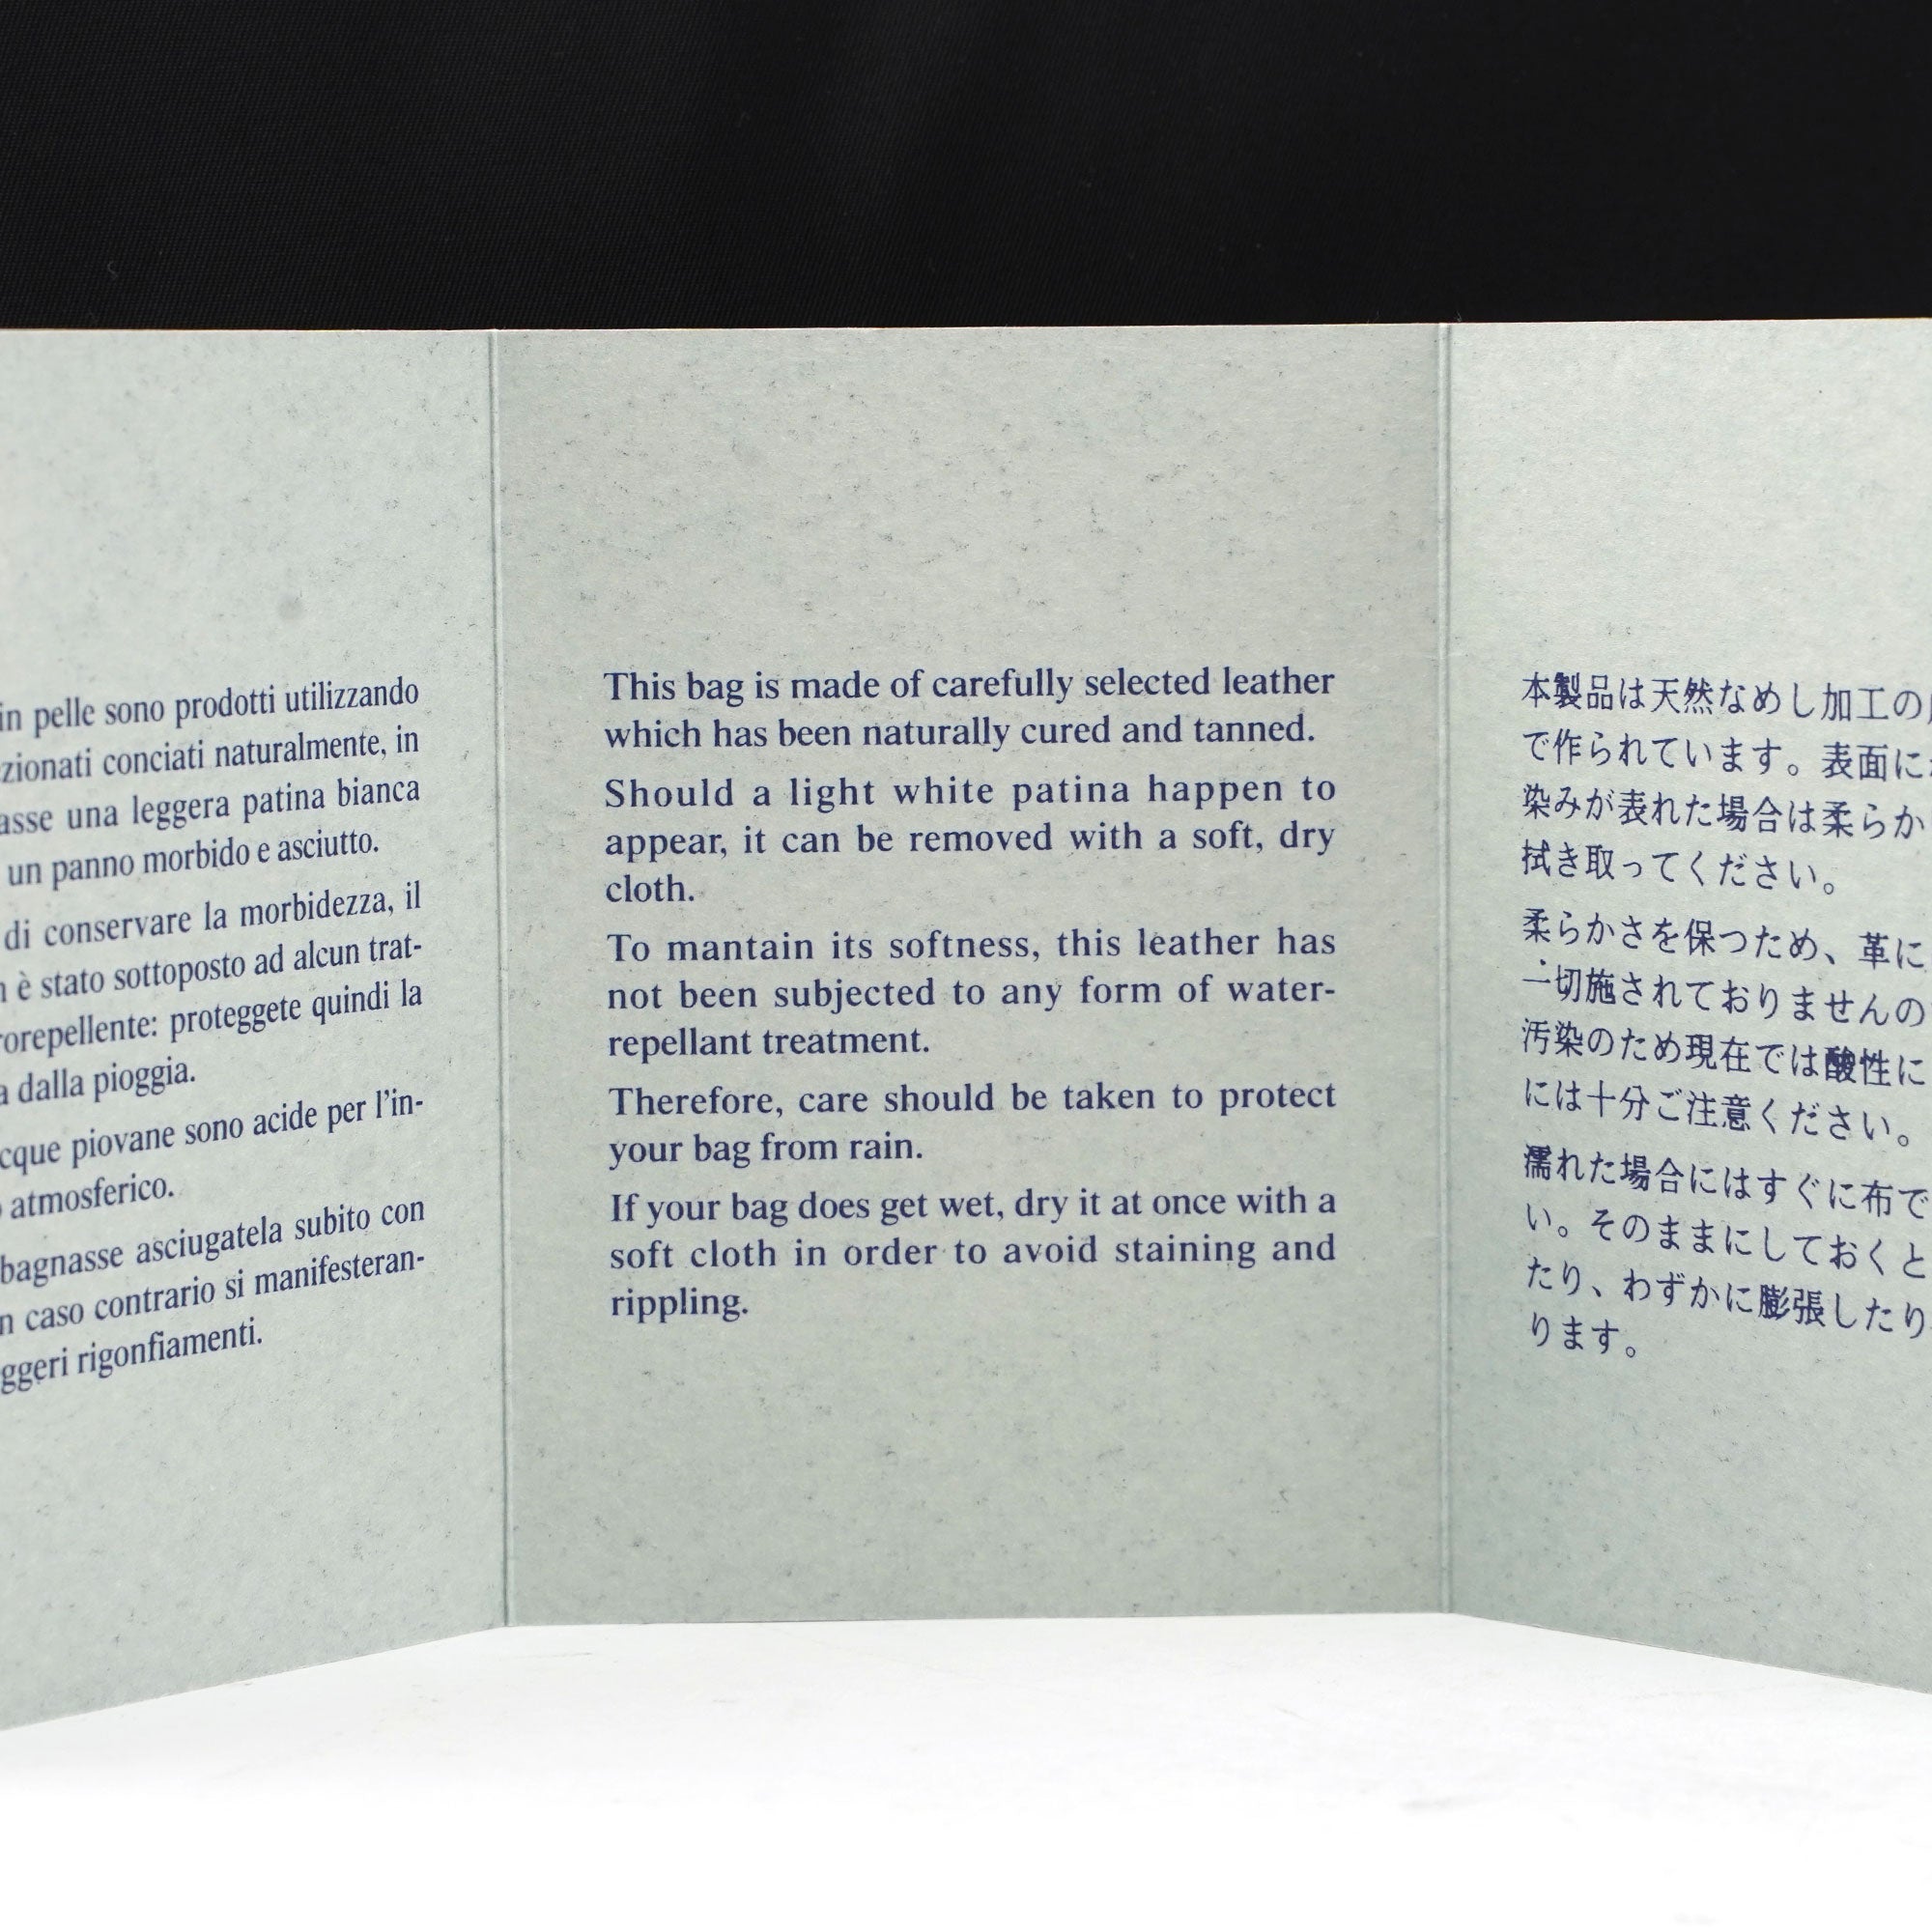 in pelle sono prodotti utilizzando
conciati naturalmente, in
una leggera patina bianca
un panno morbido e asciutto.
di conservare la morbidezza, il
è stato sottoposto ad alcun trat-
proteggete quindi la
dalla pioggia.
piovane sono acide per l'in-
atmosferico.
bagnasse asciugatela subito con
caso contrario si manifesteran-
rigonfiamenti.
This bag is made of carefully selected leather
which has been naturally cured and tanned.
Should a light white patina happen to
appear, it can be removed with a soft, dry
cloth.
To mantain its softness, this leather has
not been subjected to any form of water-
repellant treatment.
Therefore, care should be taken to protect
your bag from rain.
If your bag does get wet, dry it at once with a
soft cloth in order to avoid staining and
rippling.
本製品は天然なめし加工の
で作られています。表面に
染みが表れた場合は柔らか
拭き取ってください。
柔らかさを保つため、革に
一切施されておりませんの
汚染のため現在では酸性に
には十分ご注意ください。
濡れた場合にはすぐに布で
い。そのままにしておくと
たり、わずかに膨張したり
ります。